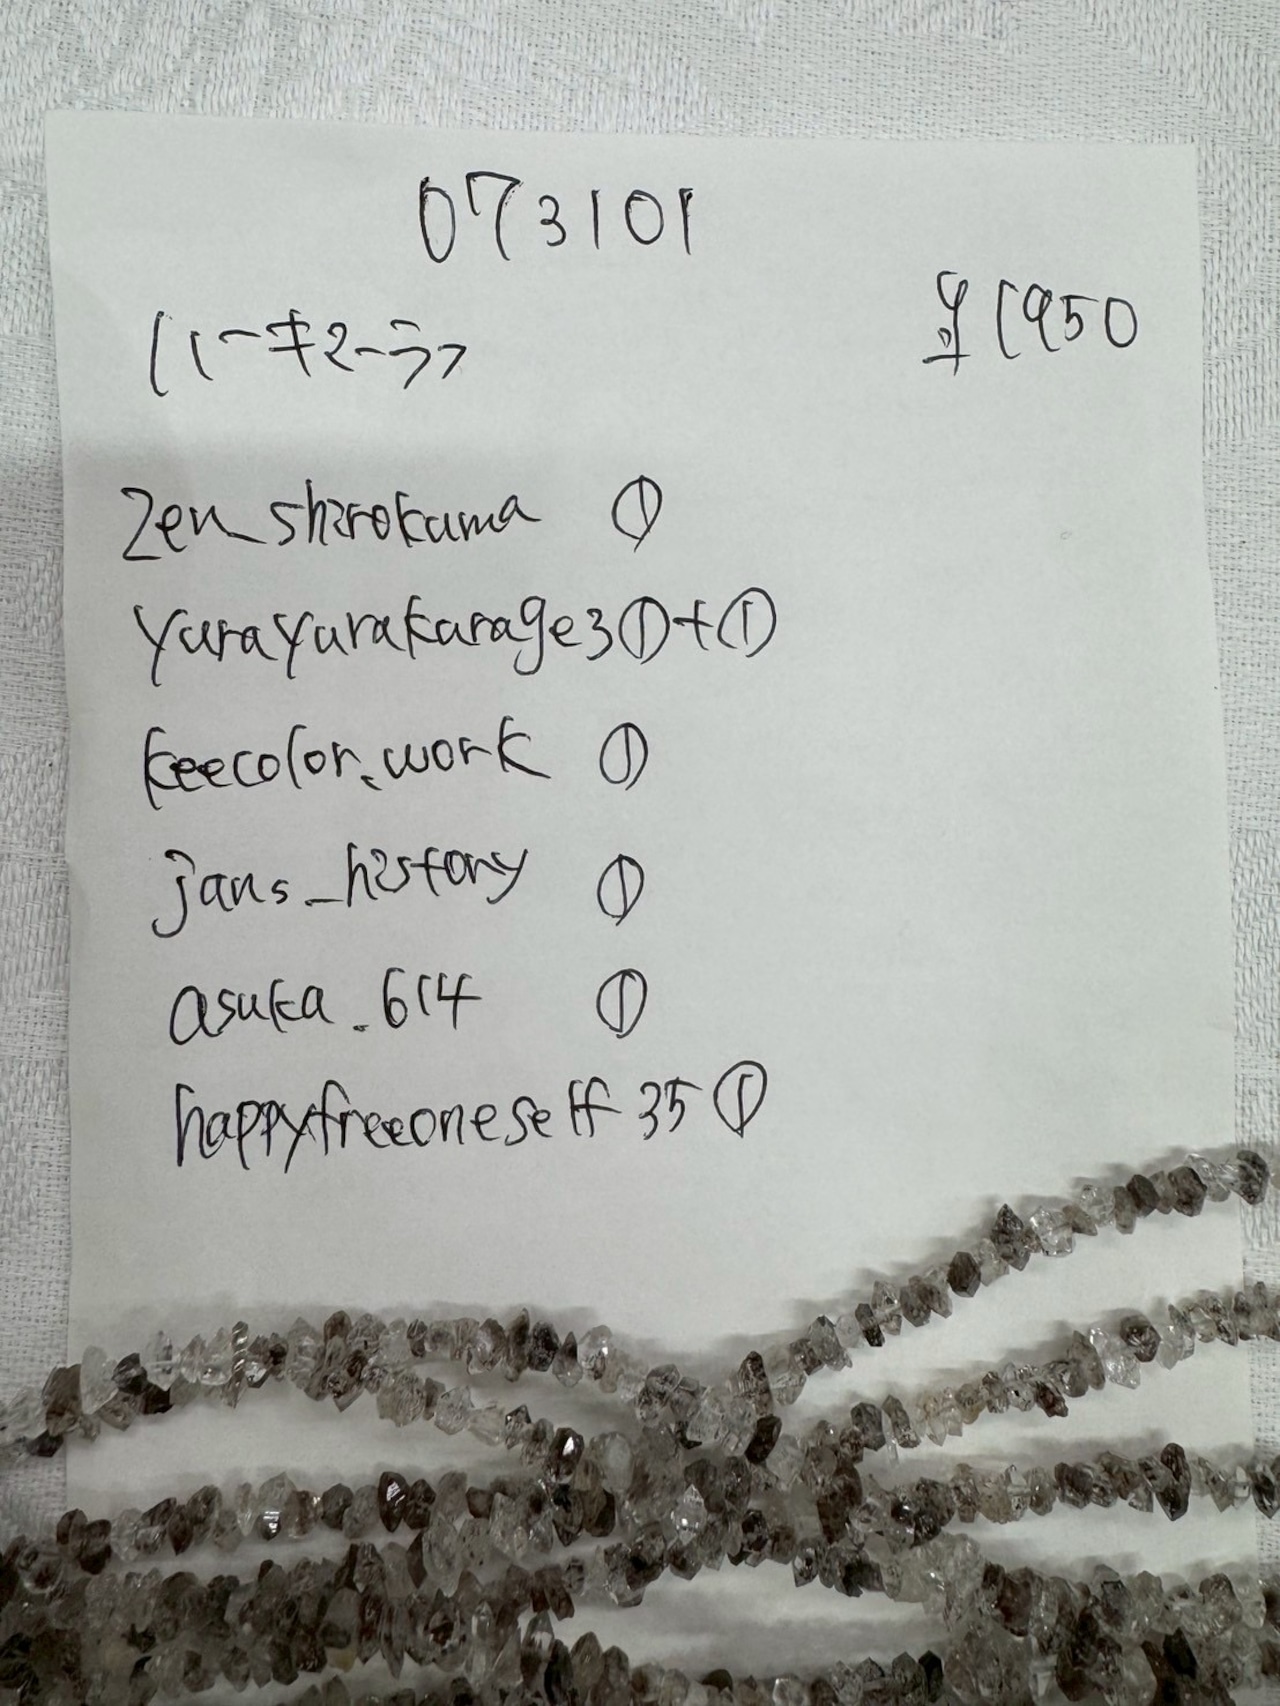 073101
ハーキマーラフ
¥1950
zen_shirokuma ①
yurayurakurage3①+①
keecolor.work ①
jans_history ①
asuka.614 ①
happyfreeoneself35①